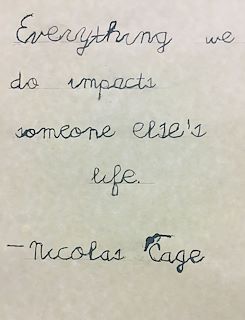 Everything we
do impacts
someone else's
life.
- Nicolas Cage